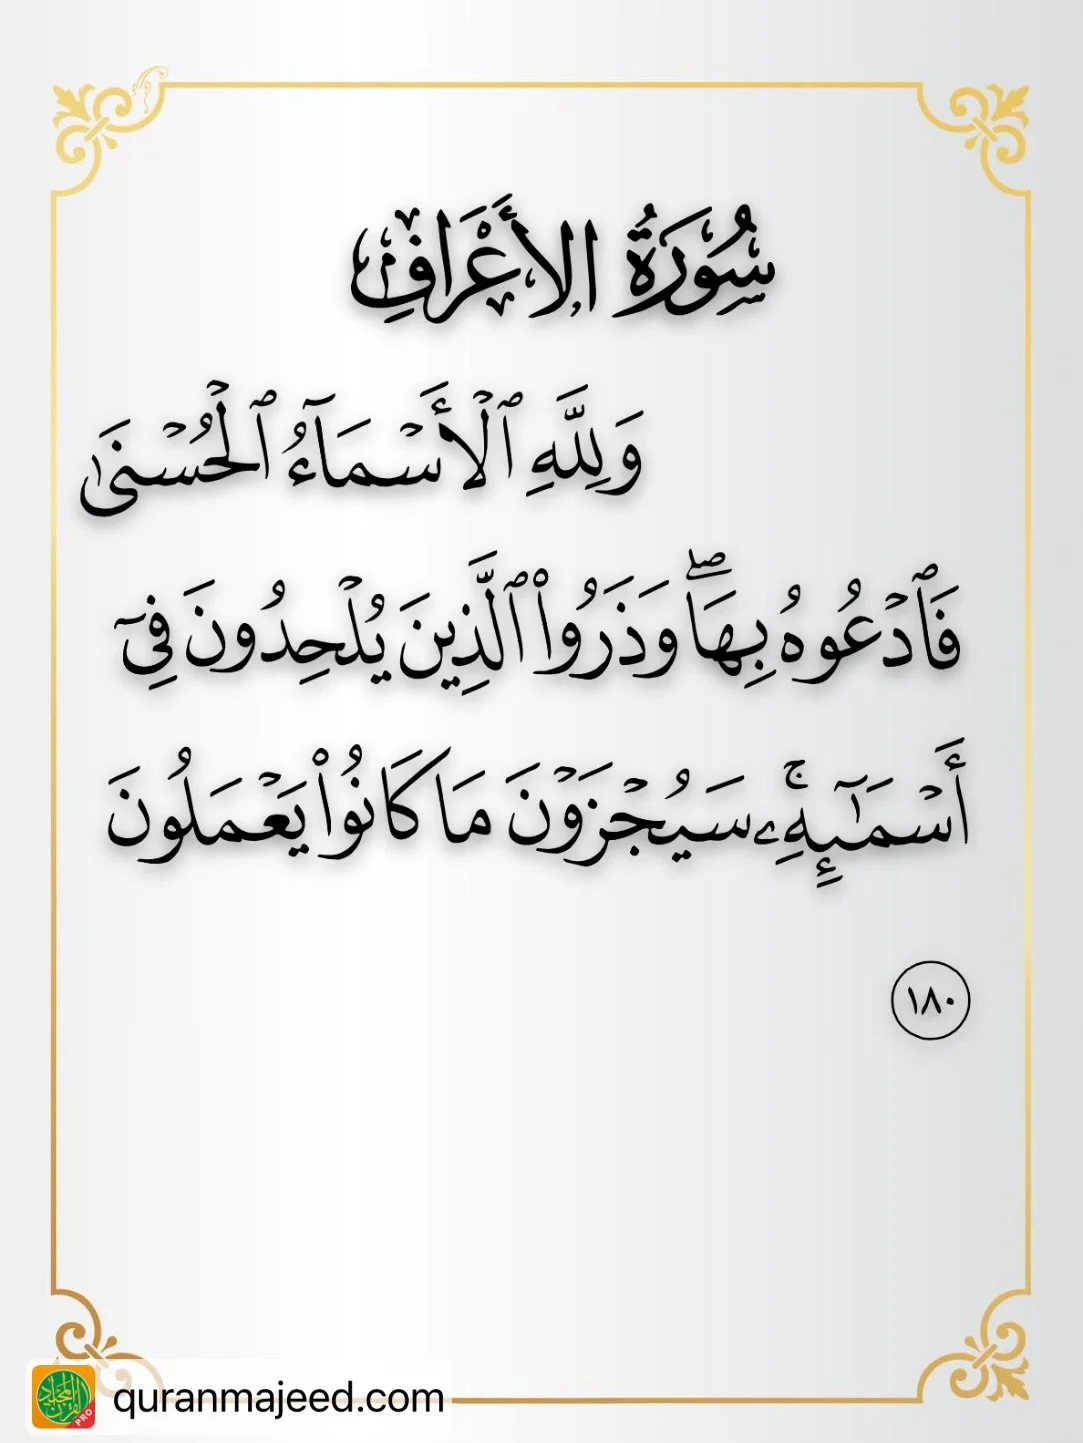 سُورَةُ الأَعْرَافِ
وَلِلَّهِ ٱلْأَسْمَآءُ ٱلْحُسْنَىٰ
فَٱدْعُوهُ بِهَا ۖ وَذَرُوا۟ ٱلَّذِينَ يُلْحِدُونَ فِىٓ
أَسْمَـٰٓئِهِۦ ۚ سَيُجْزَوْنَ مَا كَانُوا۟ يَعْمَلُونَ
١٨٠
quranmajeed.com